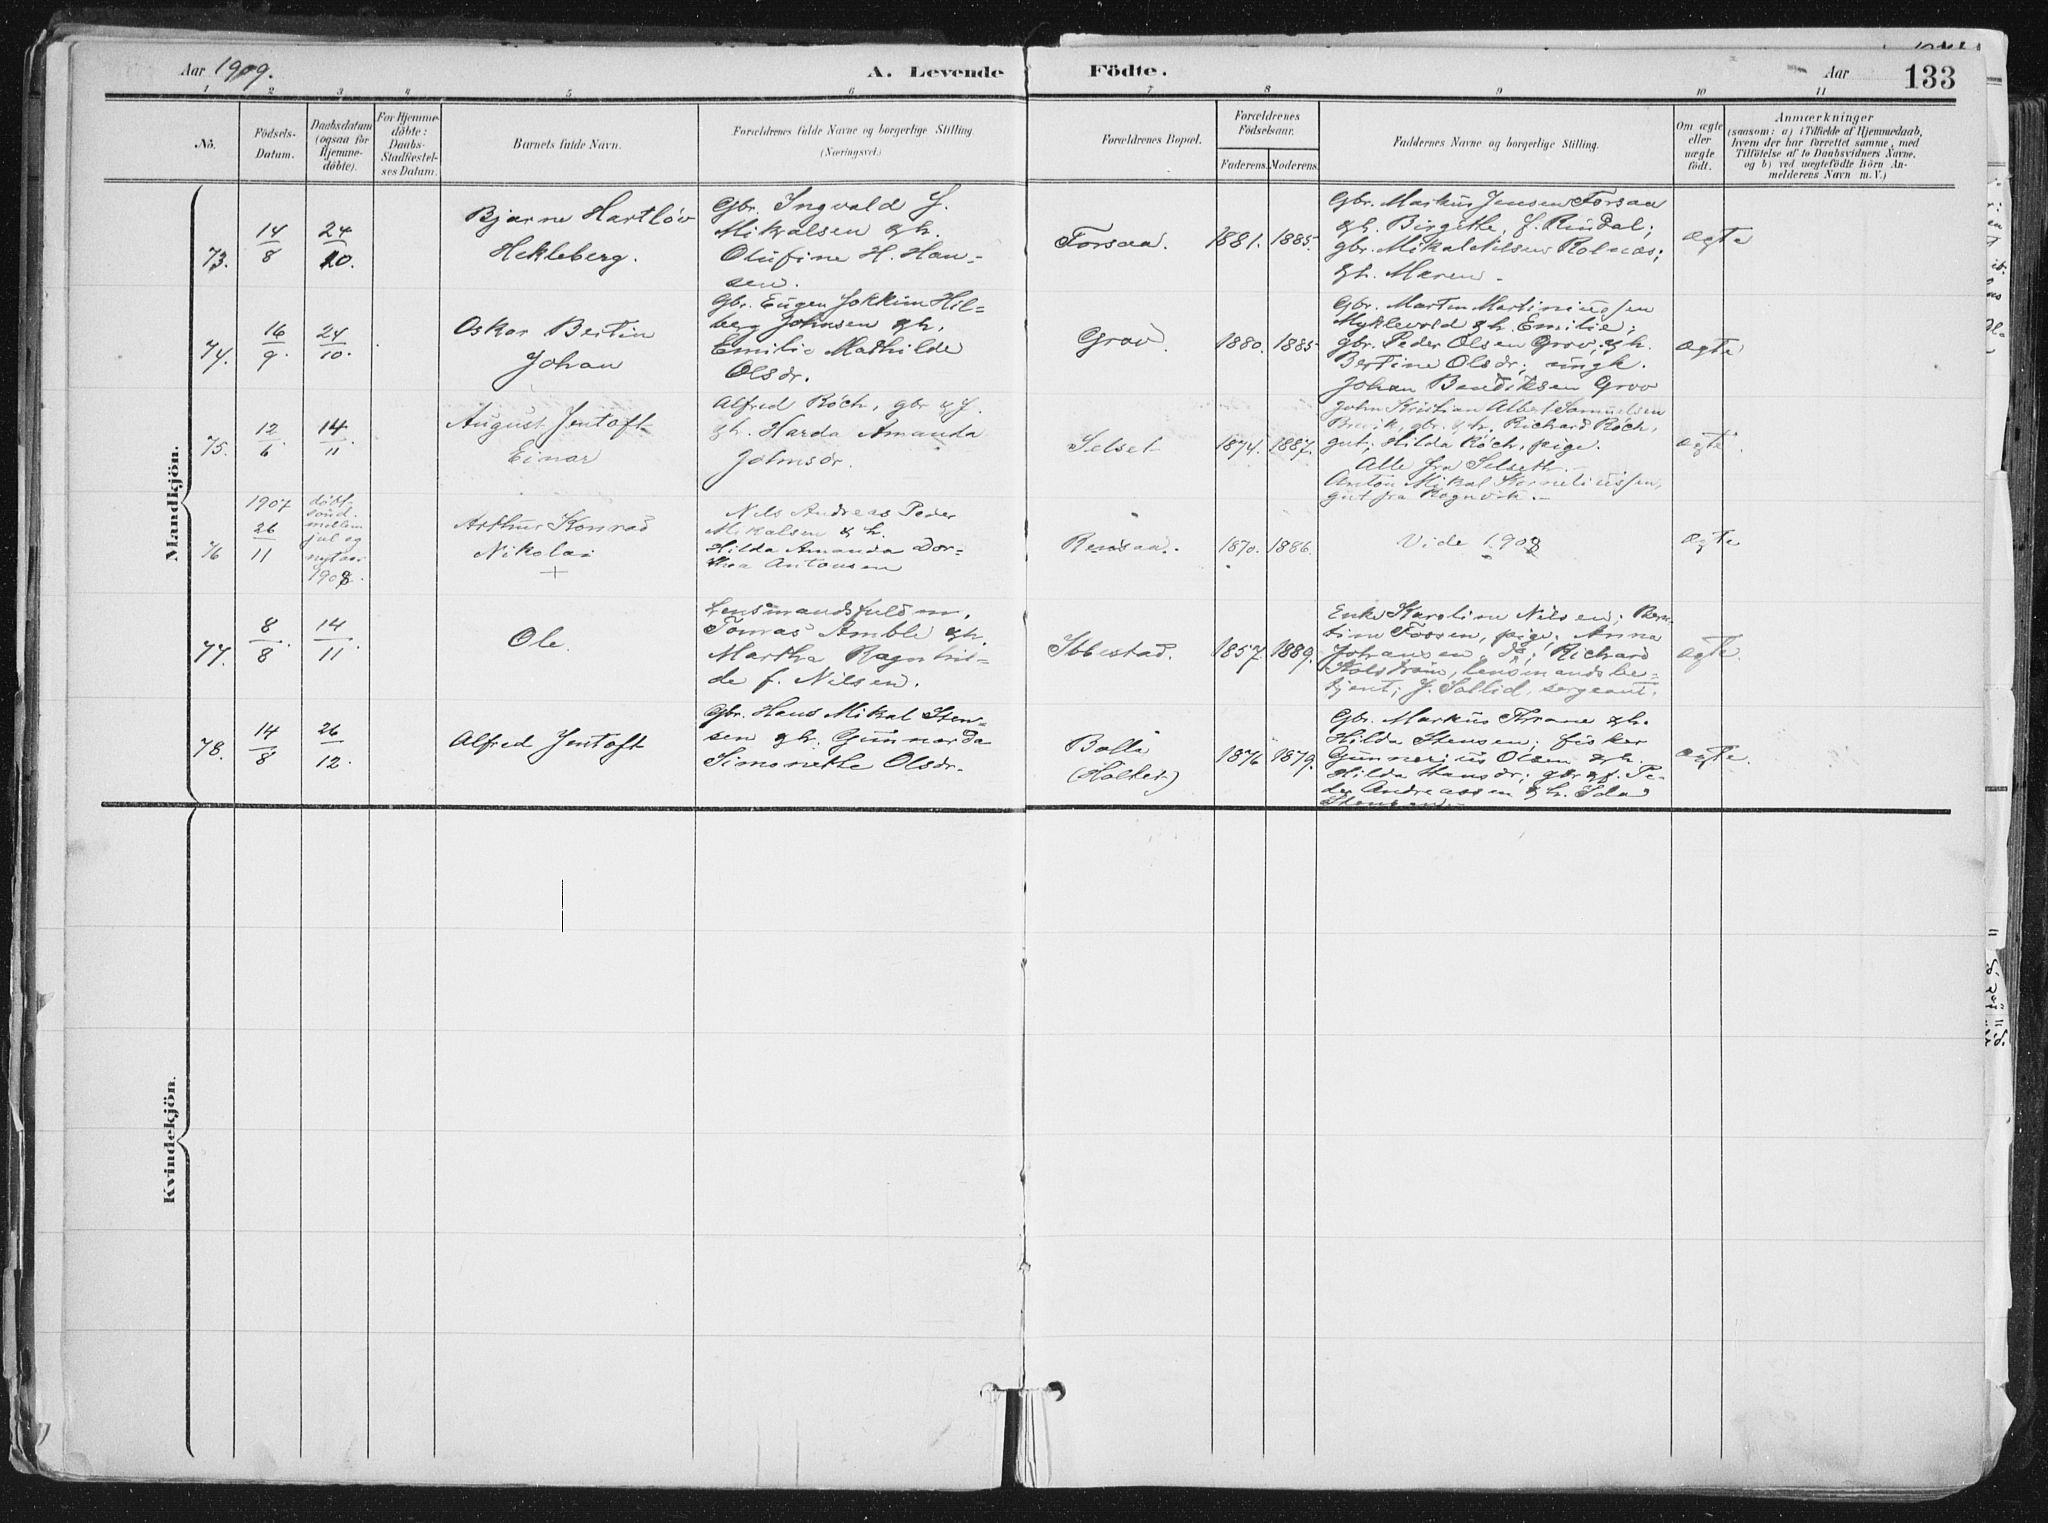 Aar 1909. A. Levende Födte. Aar 133
1 2 3 4 5 6 7 8 9 10 11
No.
Födsels-
Datum.
Daabsdatum
(ogsaa for
Hjemme-
döbte).
For Hjemme-
döbte:
Daabs-
Stadfæstel-
ses Datum.
Barnets fulde Navn.
Forældrenes fulde Navne og borgerlige Stilling.
(Næringsvei.)
Forældrenes Bopæl.
Forældrenes
Födselsaar.
Faderens. Moderens.
Faddernes Navne og borgerlige Stilling.
Om ægte
eller
uægte
födt.
Anmærkninger
(saasom: a) i Tilfælde af Hjemmedaab,
hvem der har forrettet samme, med
Tilföielse af to Daabsvidners Navne,
og b) ved uægtefödte Börn An-
melderens Navn m. V.)
Mandkjön.
73.
14/8
24/10.
Bjarne Hartløv
Hekleberg.
Gbr. Ingvald J.
Mikalsen & h.
Olufine H. Han-
sen.
Forsaa.
1881. 1885.
Gbr. Markus Jensen Forsaa
& h. Birgithe, f. Rindal;
gbr. Mikal Nilsen Rolnæs;
& h. Maren.
ægte
74.
16/9.
24/10.
Oskar Bertin
Johan
Gbr. Eugen Jokkim Hil-
berg Johnsen & h.
Emilie Mathilde
Olsdr.
Grov.
1880. 1885
Gbr. Martin Martiniussen
Myklevold & h. Emilie;
gbr. Peder Olsen Grov, & h.
Bertine Olsdr; ungk.
Johan Bendiksen Grov
ægte
75.
12/6
14/11
August Jentoft
Einar
Alfred Röch, gbr & f.
& h. Harda Amanda
Johnsdr.
Selset
1874. 1887.
John Kristian Albert Samuelsen
Brevik, gbr. & h., Richard Röch,
gut; Hilda Röch, pige.
Alle fra Selseth.
Anton Mikal Korneliussen,
gut fra Rognvik.
ægte
76
1907
26/11
døbt
sønd.
mellem
jul og
nytaar
1908.
Arthur Konrad
Nikolai
+
Nils Andreas Peder
Mikalsen & h.
Hilda Amanda Dor-
thea Antonsen
Rensaa.
1870. 1886.
Vide 1908
ægte
77.
8/8
14/11
Ole.
Lensmandsfuldm.
Tomas Amble & h.
Martha Ragnhil-
de f. Nilsen.
Ibbestad.
1857. 1889.
Enke Karoline Nilsen; Ber-
tine Fossen, pige; Anna
Johansen, do; Richard
Kolstrøm, lensmandsbe-
tjent; J. Sollid, sergeant.
ægte.
78.
14/8
26/12.
Alfred Jentoft
Gbr. Hans Mikal Sten-
sen & h. Gunnarda
Simonethe Olsdr.
Bolla
(Holtet)
1876 1879.
Gbr. Markus Thrane & h.
Hilda Stensen; fisker
Gunnerius Olsen & h.
Hilda Hansdr; gbr & f. Pe-
der Andreassen & h. Ida
Stensen.
ægte.
Kvindekjön.